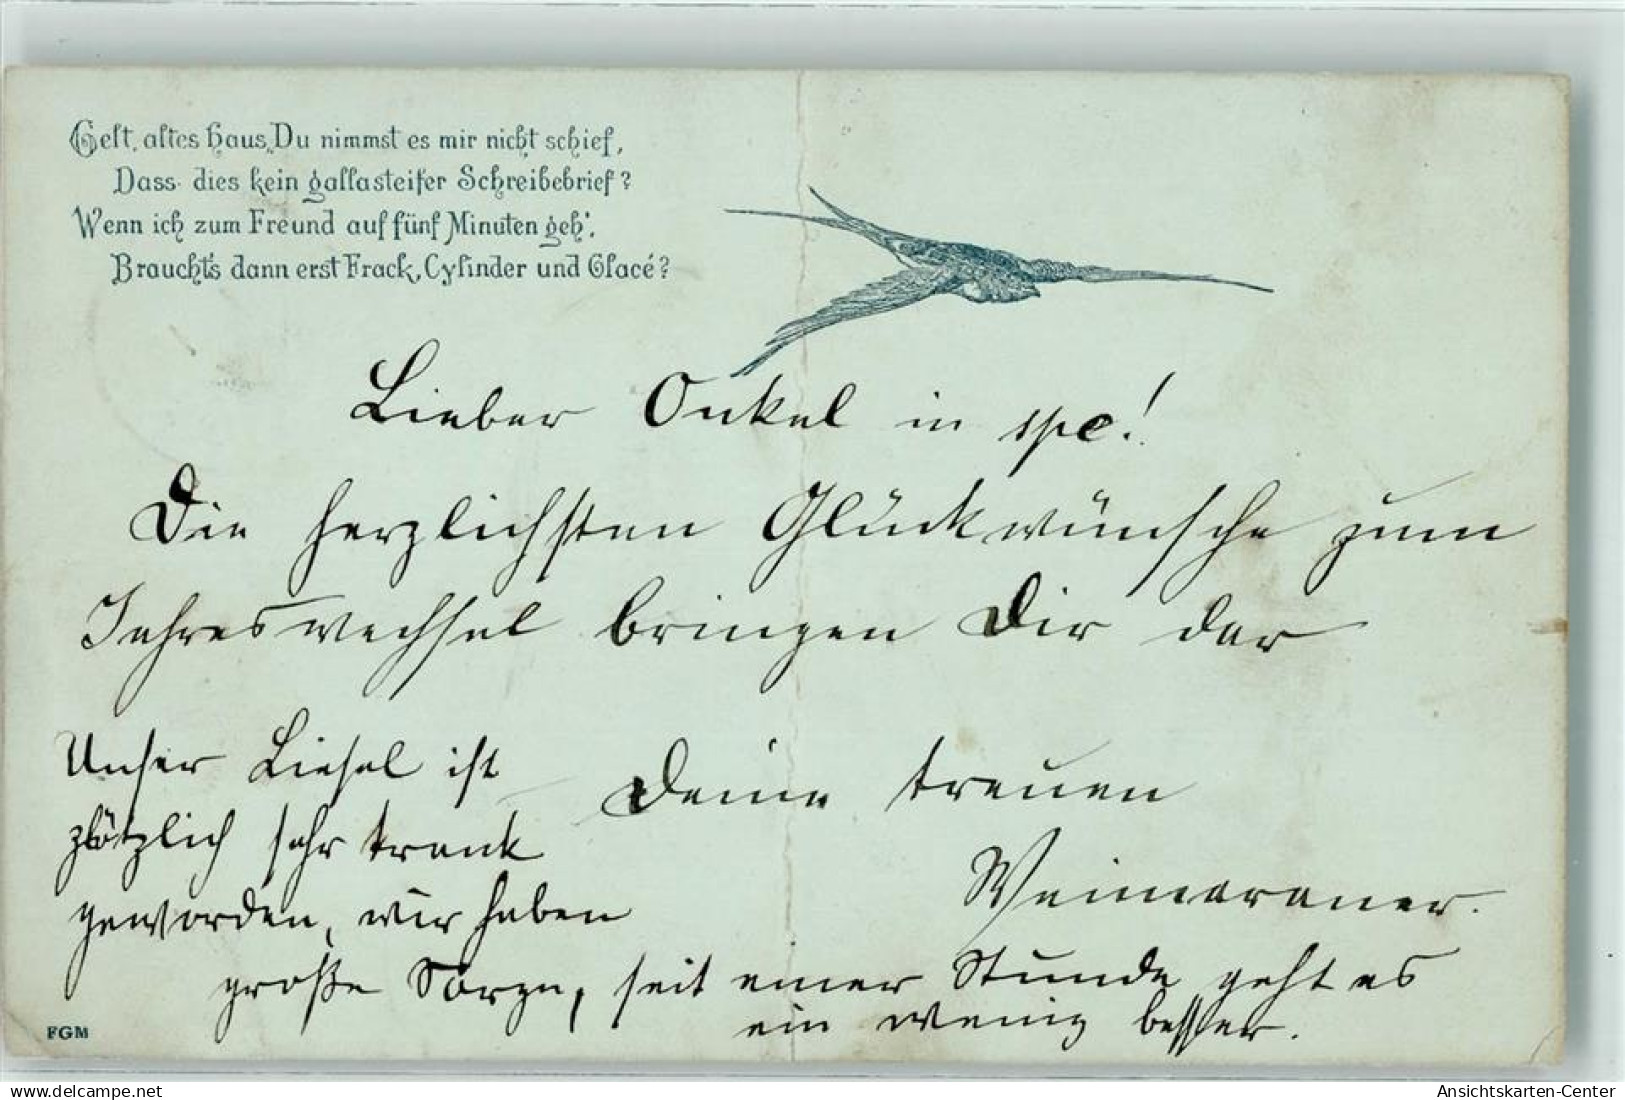 Gelt, altes Haus, Du nimmst es mir nicht schief,
Dass dies kein gallasteifer Schreibebrief?
Wenn ich zum Freund auf fünf Minuten geh',
Braucht's dann erst Frack, Cylinder und Glacé?
Lieber Onkel in spe!
Die herzlichsten Glückwünsche zum
Jahreswechsel bringen Dir der
Deine treuen
Weimaraner.
Unser Liesel ist
plötzlich sehr krank
geworden, wir haben
große Sorge, seit einer Stunde geht es
ein wenig besser.
FGM
www.delcampe.net
Ansichtskarten-Center